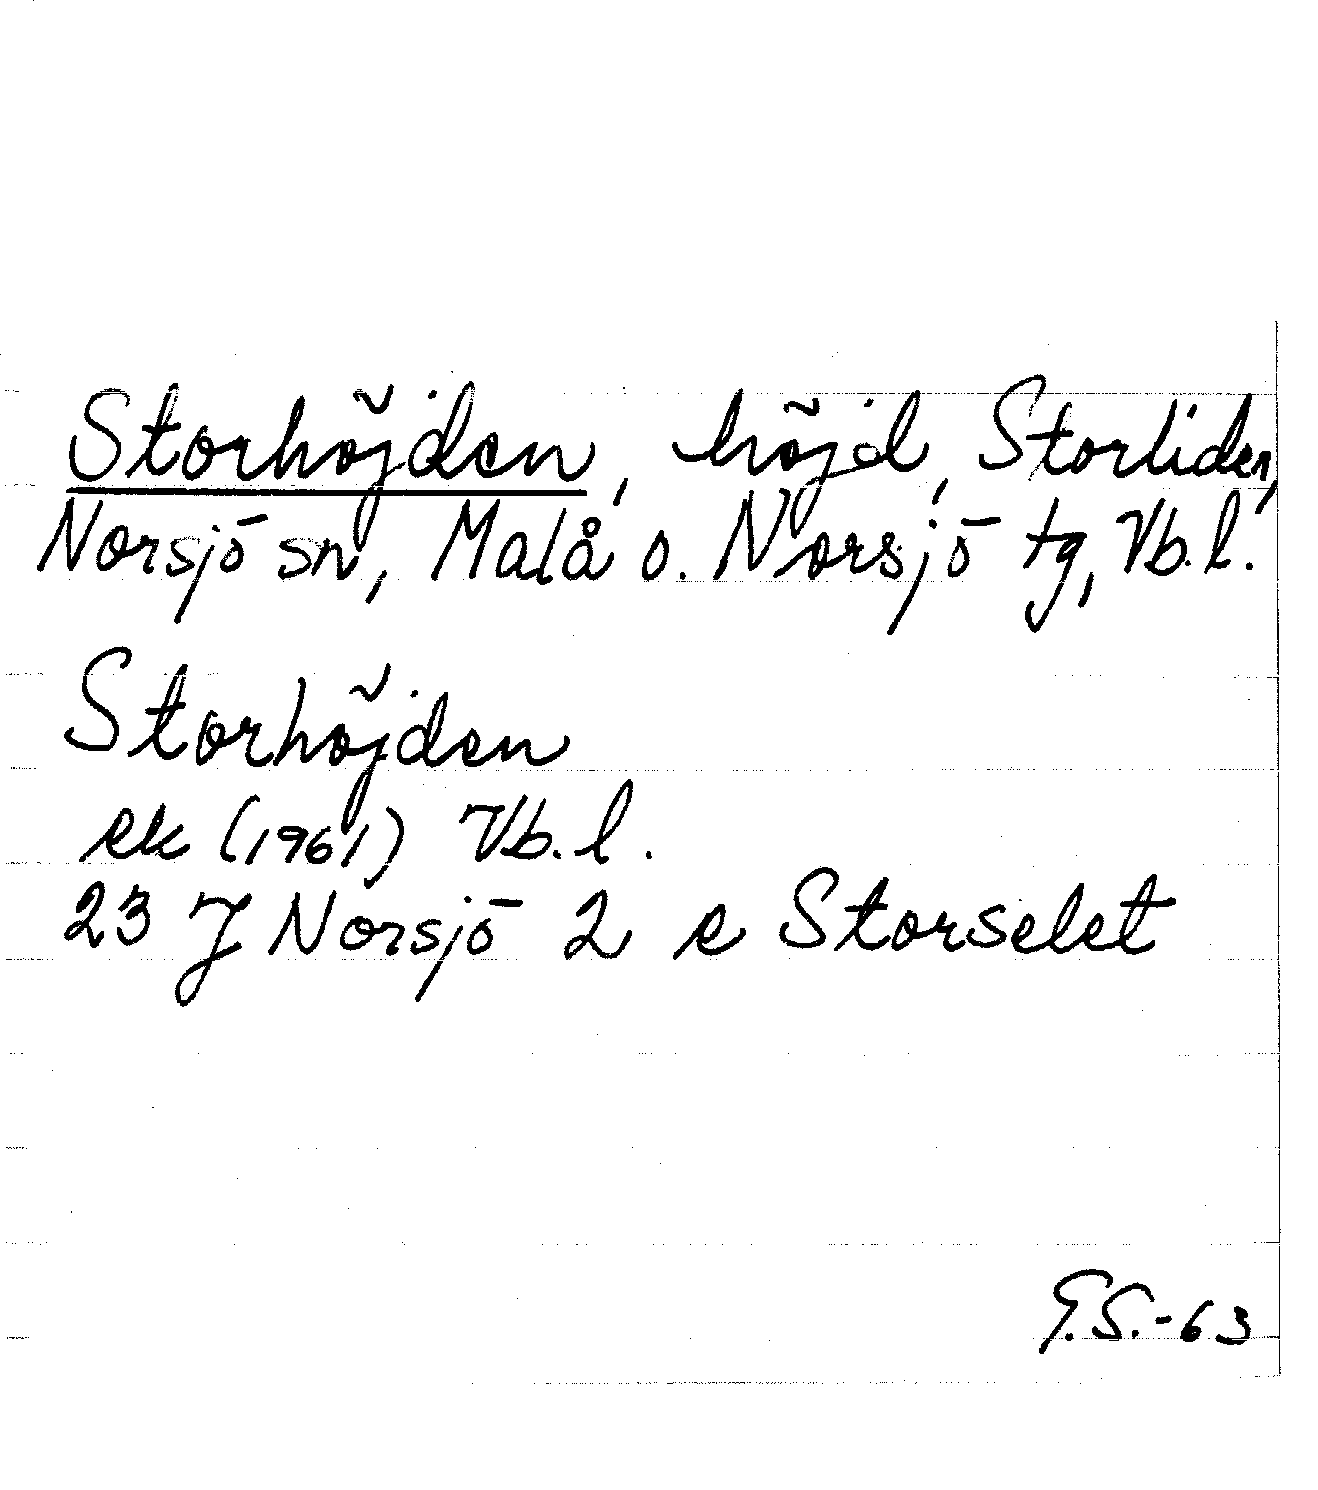 Storhöjden, höjd, Storliden,
Norsjö sn, Malå o. Norsjö tg, Vb. l.
Storhöjden
ek (1961) Vb. l.
23 J Norsjö 2 e Storselet
G.S.-63